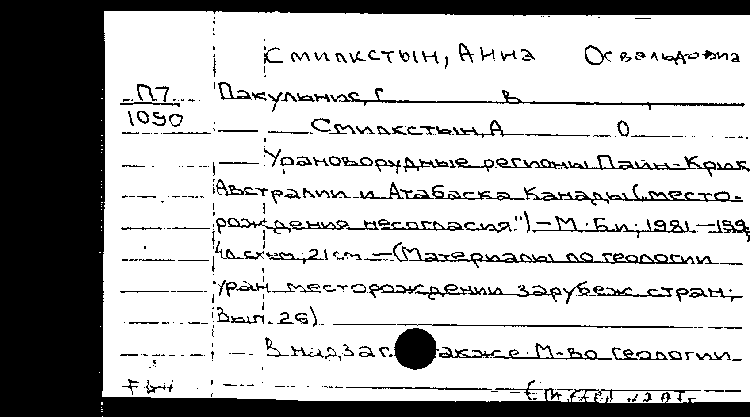 Смилкстын, Анна Освальдовна
П7 Пакульнис, Г В
1090 Смилкстын, А О
Урановорудные регионы Пайн-Крик
Австралии и Атабаска Канады („место-
рождения несогласия") – М. Б.и; 1981. – 159,
4л. схем; 21 см – (Материалы по геологии
уран месторождении зарубеж стран;
Вып. 26)
В надзаг. также М-во геологии